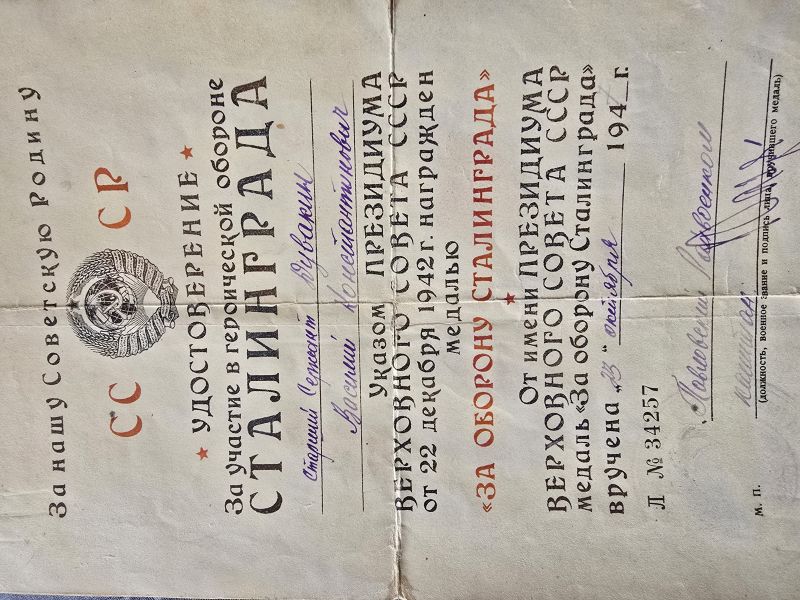 За нашу Советскую Родину
СС СР
УДОСТОВЕРЕНИЕ
За участие в героической обороне
СТАЛИНГРАДА
Старший Сержант Дувакин
Василий Константинович
Указом ПРЕЗИДИУМА
ВЕРХОВНОГО СОВЕТА СССР
от 22 декабря 1942 г. награжден
медалью
«ЗА ОБОРОНУ СТАЛИНГРАДА»
От имени ПРЕЗИДИУМА
ВЕРХОВНОГО СОВЕТА СССР
медаль «За оборону Сталинграда»
вручена „ “ октября 194 г.
Л № 34257
(должность, военное звание и подпись лица, вручившего медаль)
М. П.